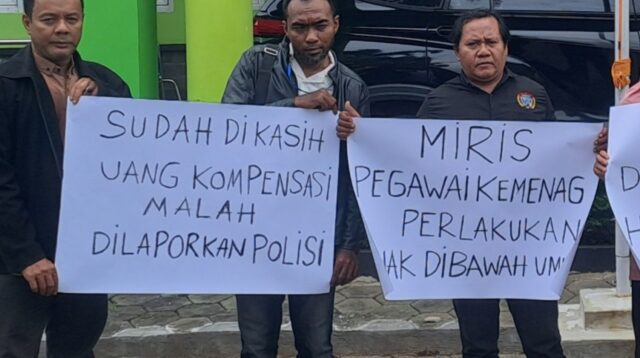 SUDAH DIKASIH
UANG KOMPENSASI
MALAH
DILAPORKAN POLISI
MIRIS
PEGAWAI KEMENAG
PERLAKUKAN
DIBAWAH